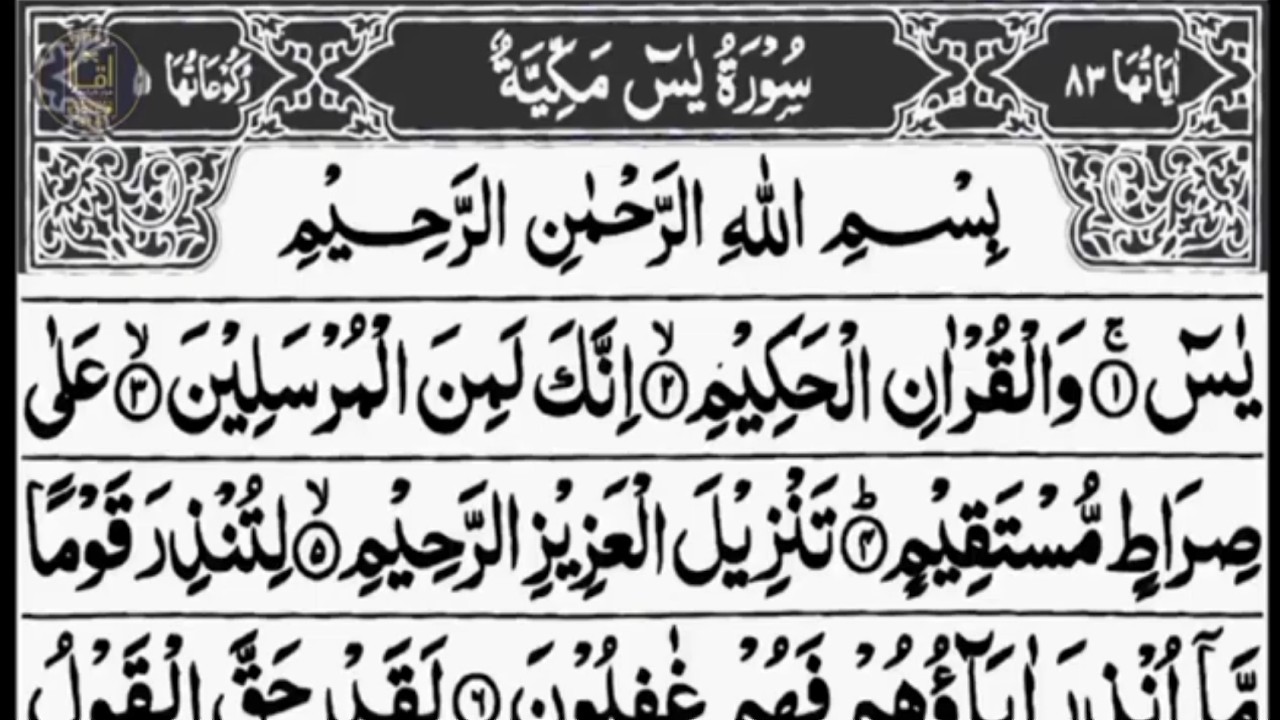 اٰیَاتُهَا ٨٣ سُوْرَةُ یٰسٓ مَكِّیَّةٌ رُكُوْعَاتُهَا
بِسْمِ اللّٰهِ الرَّحْمٰنِ الرَّحِیْمِ
یٰسٓ ۚ﴿۱﴾ وَالْقُرْاٰنِ الْحَكِیْمِ ۙ﴿۲﴾ اِنَّكَ لَمِنَ الْمُرْسَلِیْنَ ۙ﴿۳﴾ عَلٰی
صِرَاطٍ مُّسْتَقِیْمٍ ؕ﴿۴﴾ تَنْزِیْلَ الْعَزِیْزِ الرَّحِیْمِ ۙ﴿۵﴾ لِتُنْذِرَ قَوْمًا
مَّاۤ اُنْذِرَ اٰبَآؤُهُمْ فَهُمْ غٰفِلُوْنَ ﴿۶﴾ لَقَدْ حَقَّ الْقَوْلُ